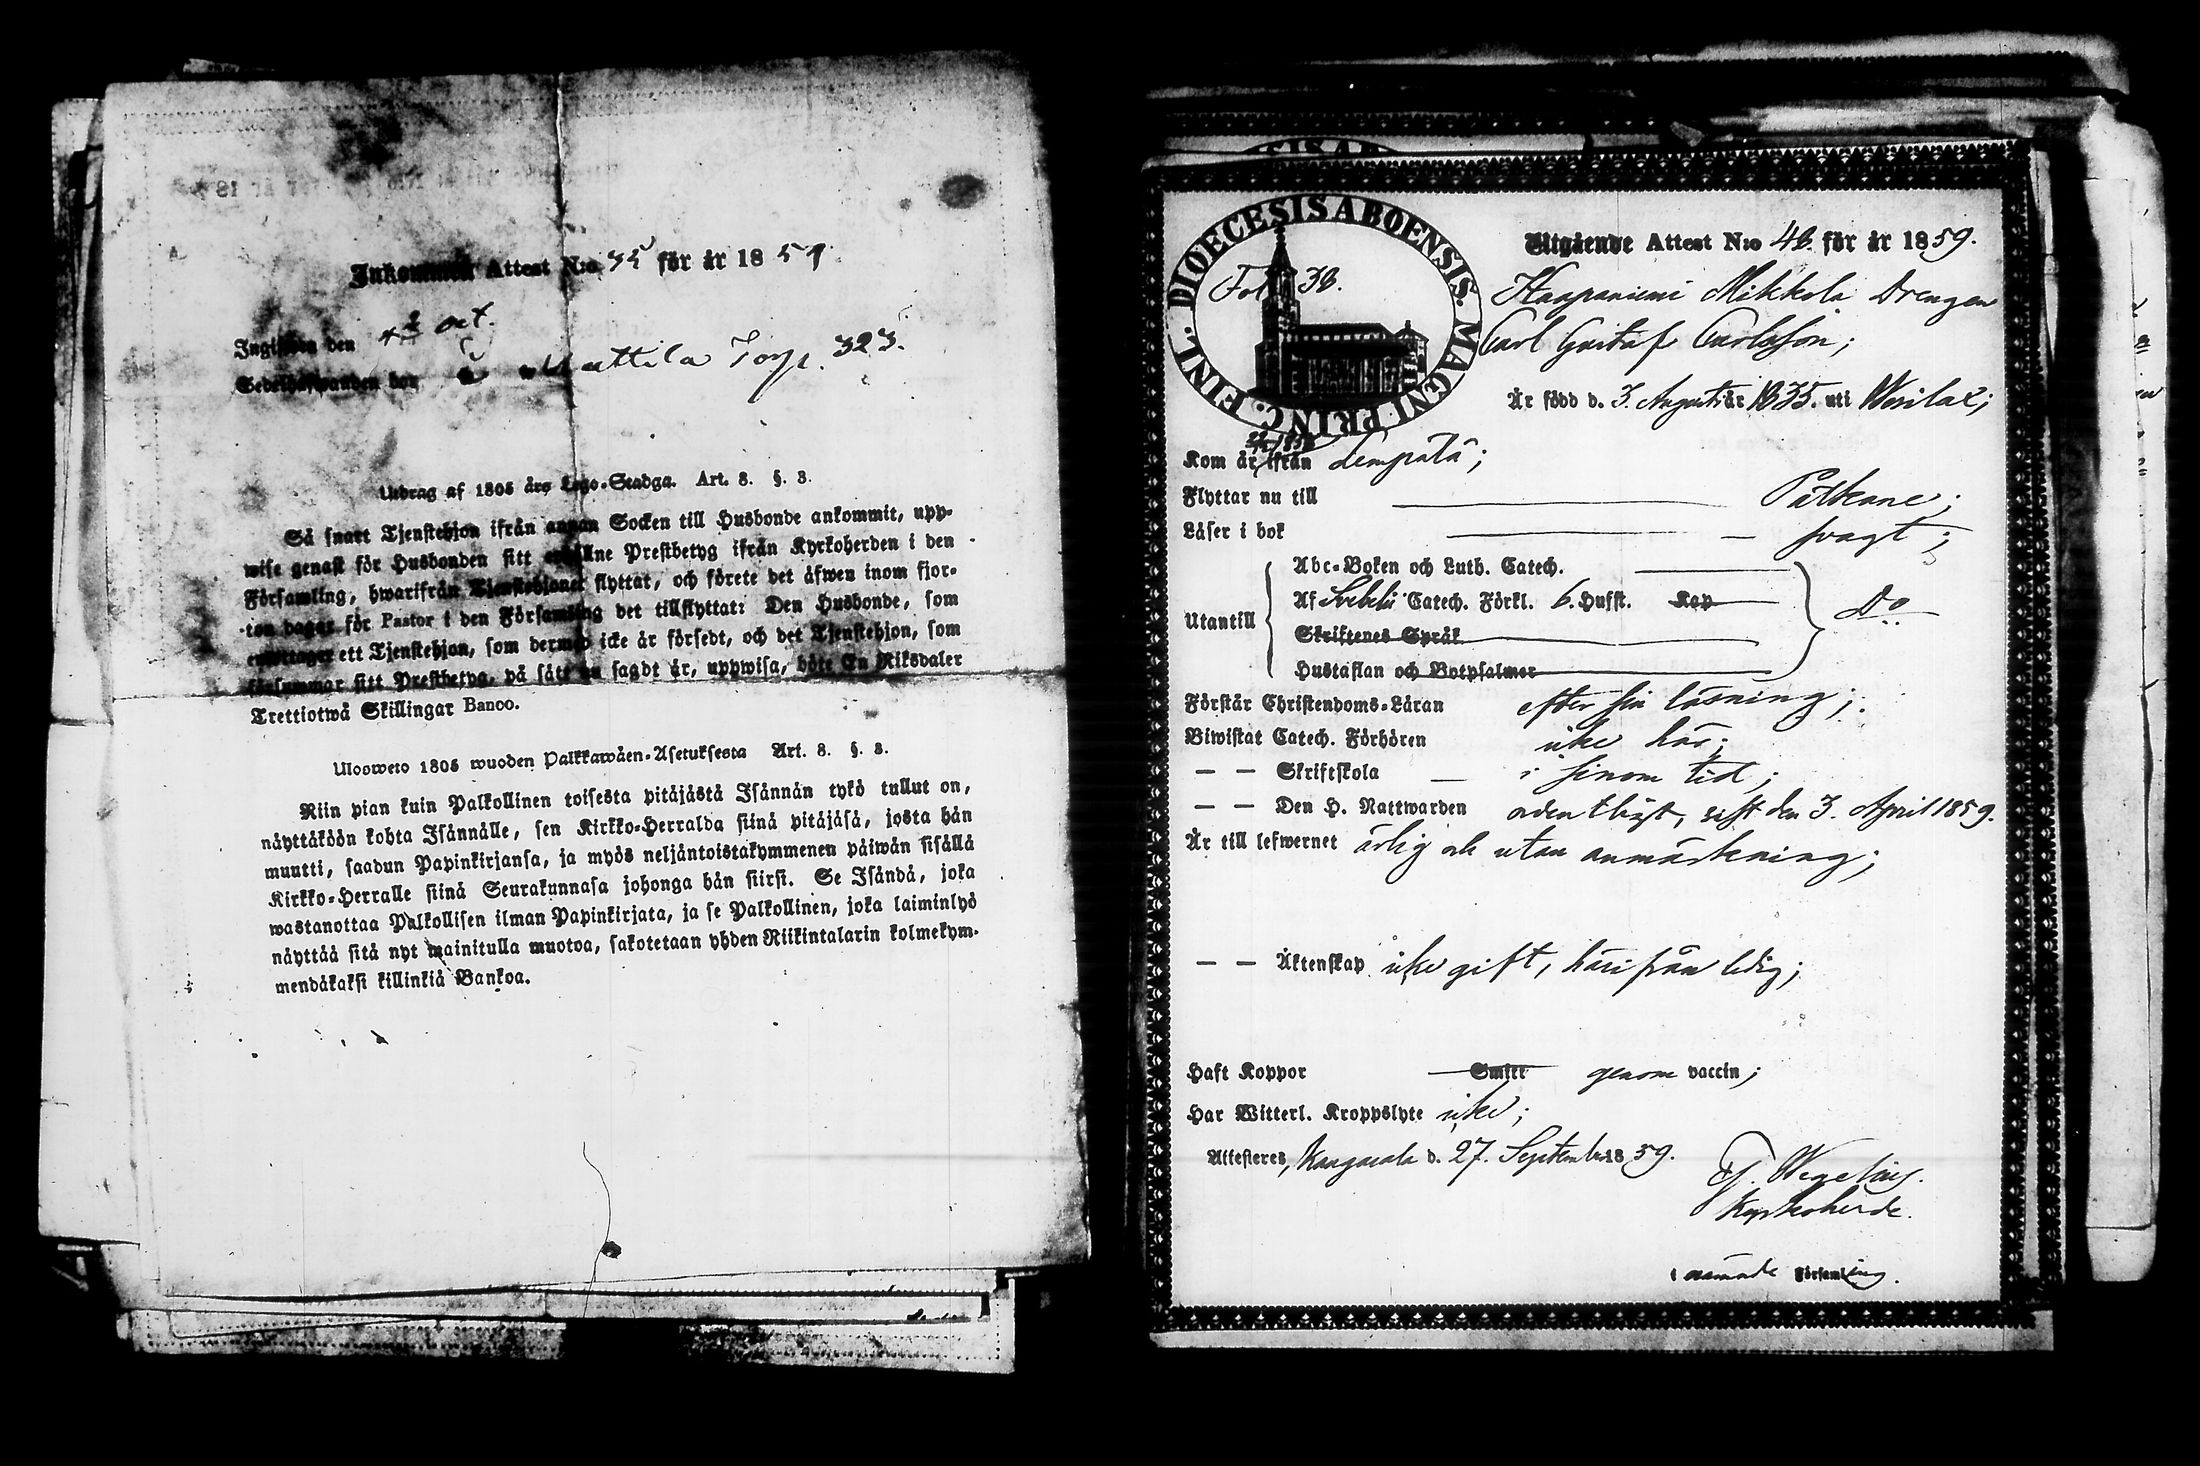 Inkommen Attest N:o 35 för år 1859.
Ingifwen den 4 Oct.
Attila Torp. 323.
Utdrag af 1805 års Lego-Stadga. Art. 8. §. 3.
Så snart Tjenstehjon ifrån annan Socken till Husbonde ankommit, upp-
wise genast för Husbonden sitt erhållne Prestbetyg ifrån Kyrkoherden i den
Församling, hwarifrån Tjenstehjonet flyttat, och förete det äfwen inom fjor-
ton dagar för Pastor i den Församling det tillflyttat: Den Husbonde, som
emottager ett Tjenstehjon, som dermed icke är försedt, och det Tjenstehjon, som
försummar sitt Prestbetyg, på sätt nu sagdt är, uppwisa, böte En Riksdaler
Trettiotwå Skillingar Banco.
Ulosweto 1805 wuoden Palkkawäen-Asetuksesta Art. 8. §. 3.
Niin pian kuin Palkollinen toisesta pitäjästä Isännän tykö tullut on,
näyttäköön kohta Isännälle, sen Kirkko-Herralda siinä pitäjäsä, josta hän
muutti, saadun Papinkirjansa, ja myös neljäntoistakymmenen päiwän sisällä
Kirkko-Herralle siinä Seurakunnasa johonga hän siirsi. Se Isändä, joka
wastanottaa Palkollisen ilman Papinkirjata, ja se Palkollinen, joka laiminlyö
näyttää sitä nyt mainitulla muotoa, sakotetaan yhden Riikintalarin kolmekym-
mendäkaksi killinkiä Bankoa.
DIOECESIS ABOENSIS. MAGNI PRINC. FINL.
Fol. 38.
Utgående Attest N:o 48. för år 1859.
Haapaniemi Mikkola Drengen
Carl Gustaf Carlsson;
Är född d. 3. Augusti år 1835. uti Wesilax;
Kom år 1858 ifrån Lempälä;
Flyttar nu till Pälkäne;
Läser i bok svagt;
Utantill
Abc-Boken och Luth. Catech.
Af Svebelii Catech. Förkl. 6. Hufst. Kap
Skriftenes Språk
Hustaflan och Botpsalmer
Do
Förstår Christendoms-Läran efter sin läsning;
Biwistat Catech. Förhören icke här;
— — Skriftskola i sinom tid;
— — Den H. Nattwarden ordentligt, sist den 3. April 1859.
Är till lefwernet ärlig och utan anmärkning;
— — Äktenskap icke gift, härifrån ledig;
Haft Koppor Smitt genom vaccin;
Har Witterl. Kroppslyte icke;
Attesteres, Kangasala d. 27. September 1859.
Wegelius.
Kyrkoherde.
i nämnde Församling.